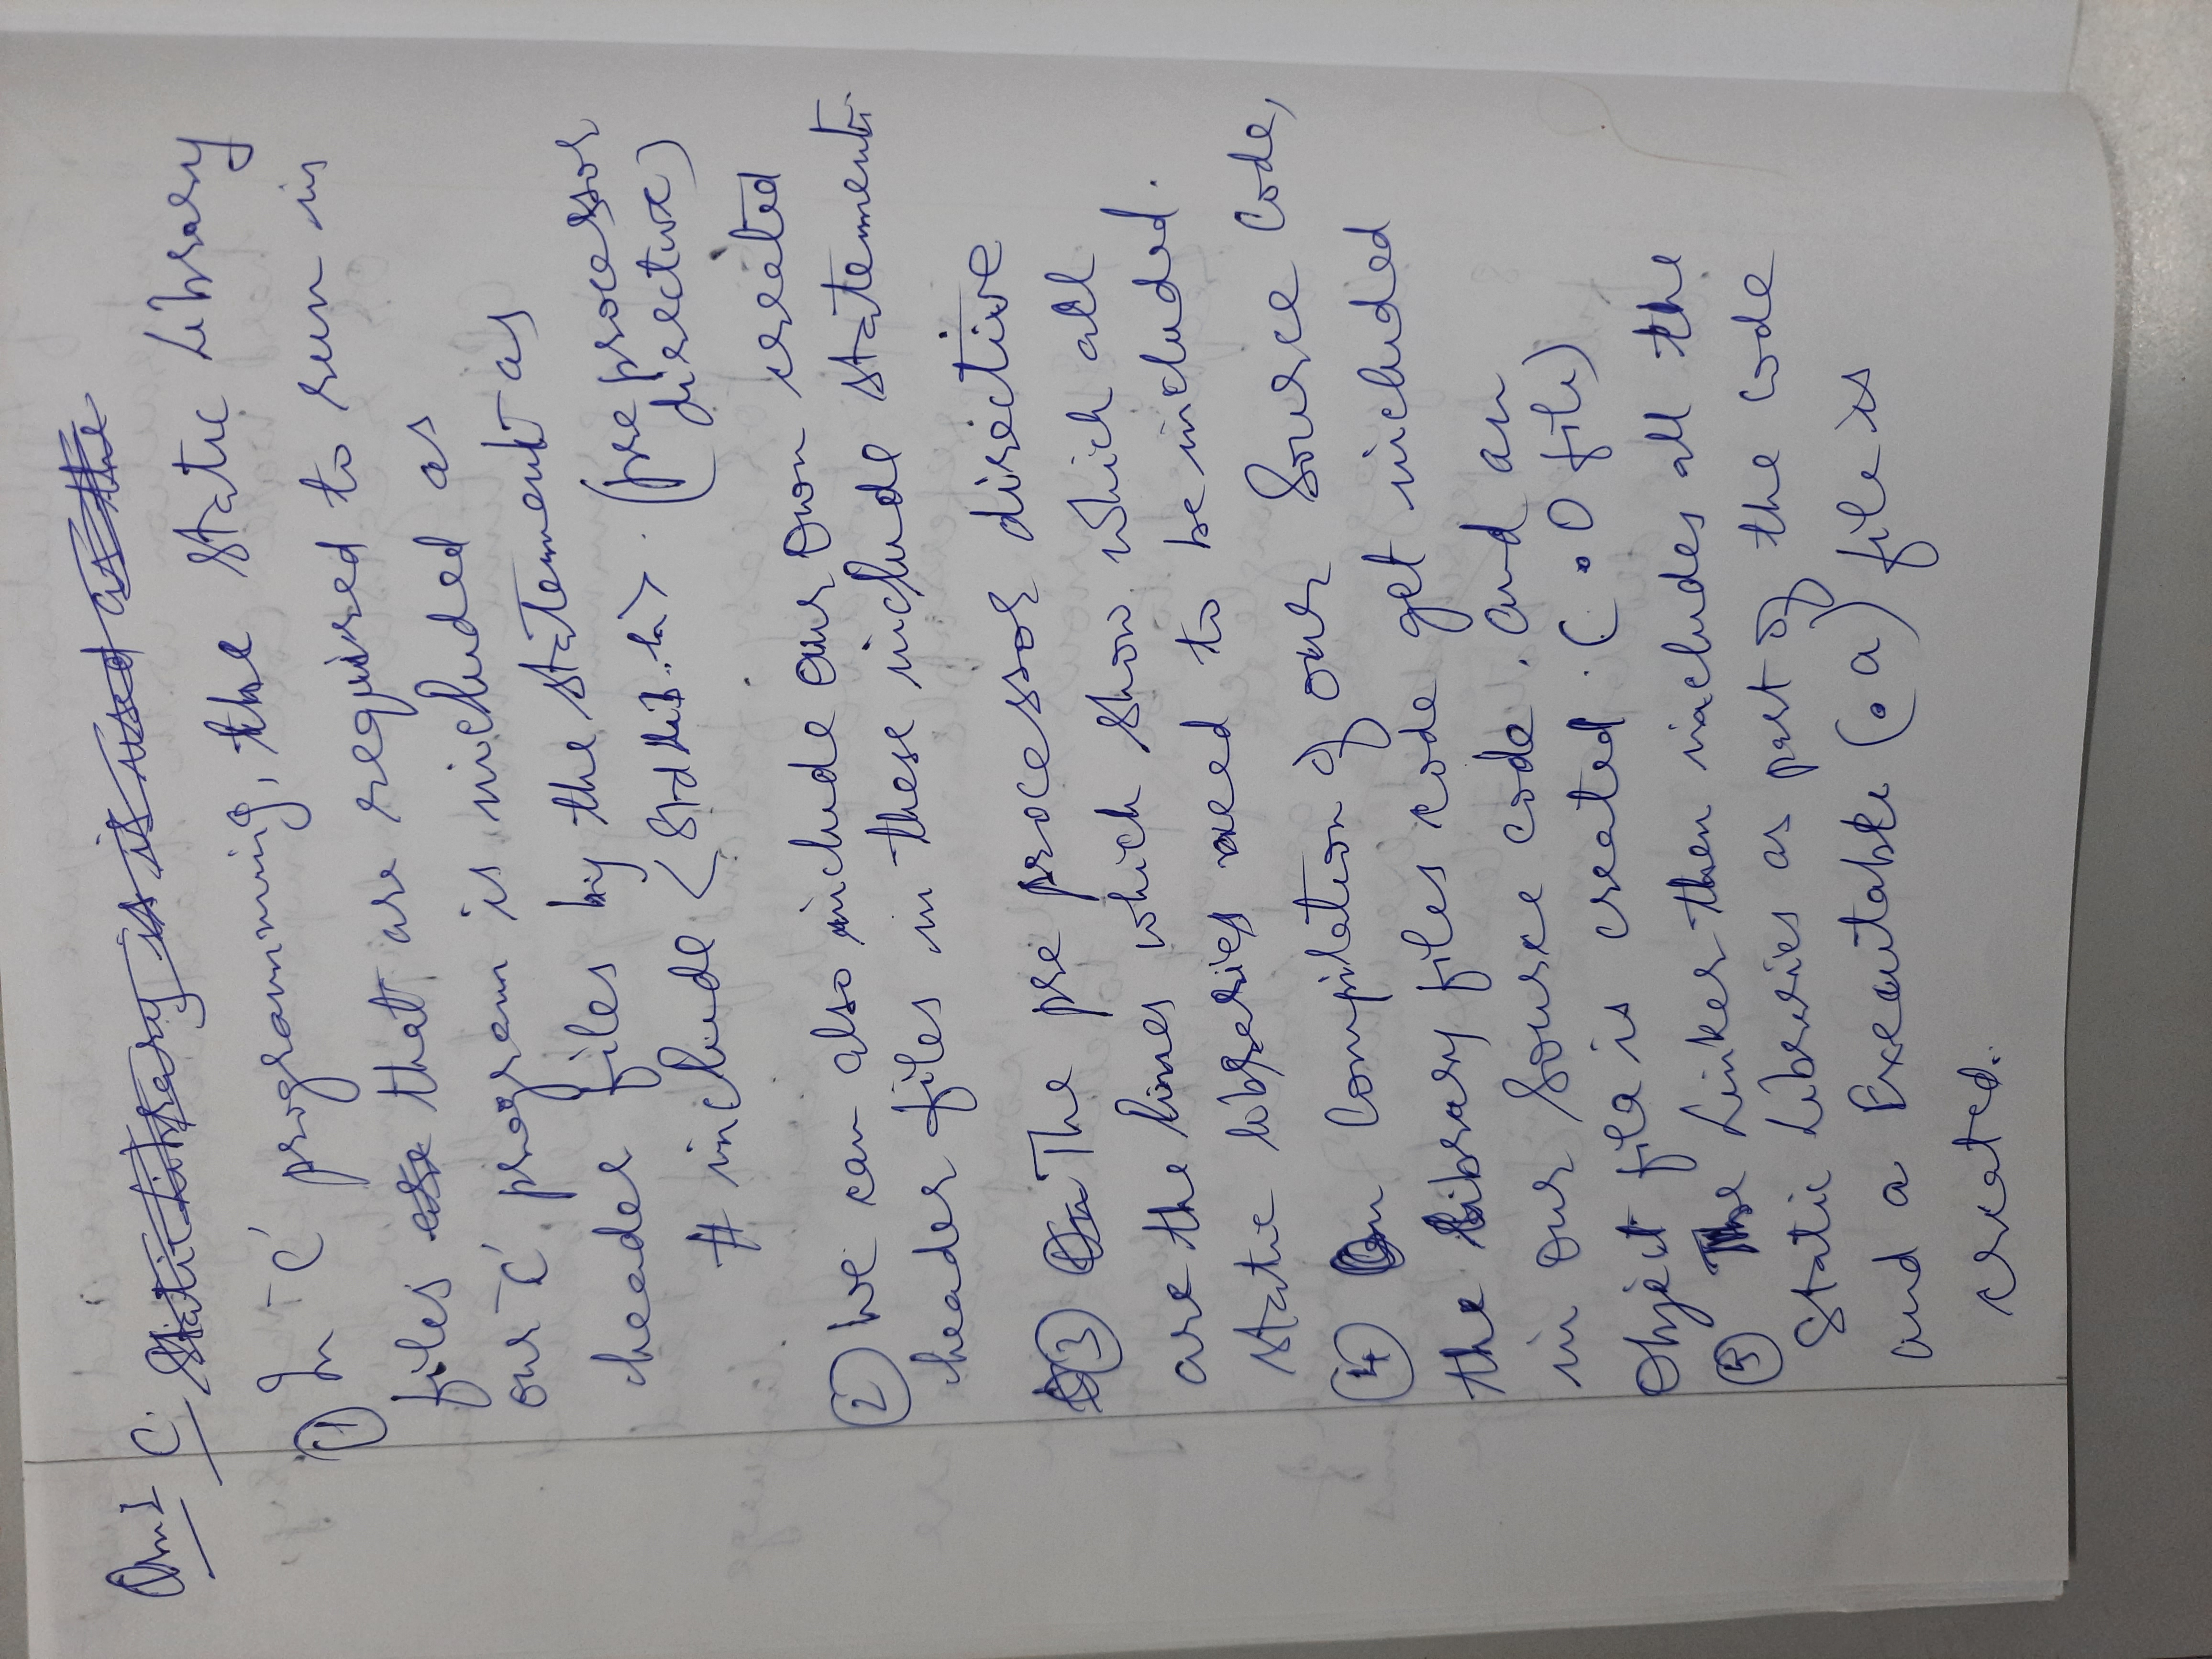 Ans 1 C. Static Library is is used as the
① In 'C' programming, the Static Library
files are that are required to run in
our 'C' program is included as
header files by the statement as
# include <Stdlib.h>. (pre processor
directive)
② We can also include our own created
header files in these include statements
③ On The pre processor directive
are the lines which show which all
static libraries need to be included.
④ On Compilation of our Source Code,
the Library files code get included
in our Source code. and an
Object file is created. (.O file)
⑤ The Linker then includes all the
Static Libraries as part of the code
and a Executable (.a) file is
created.